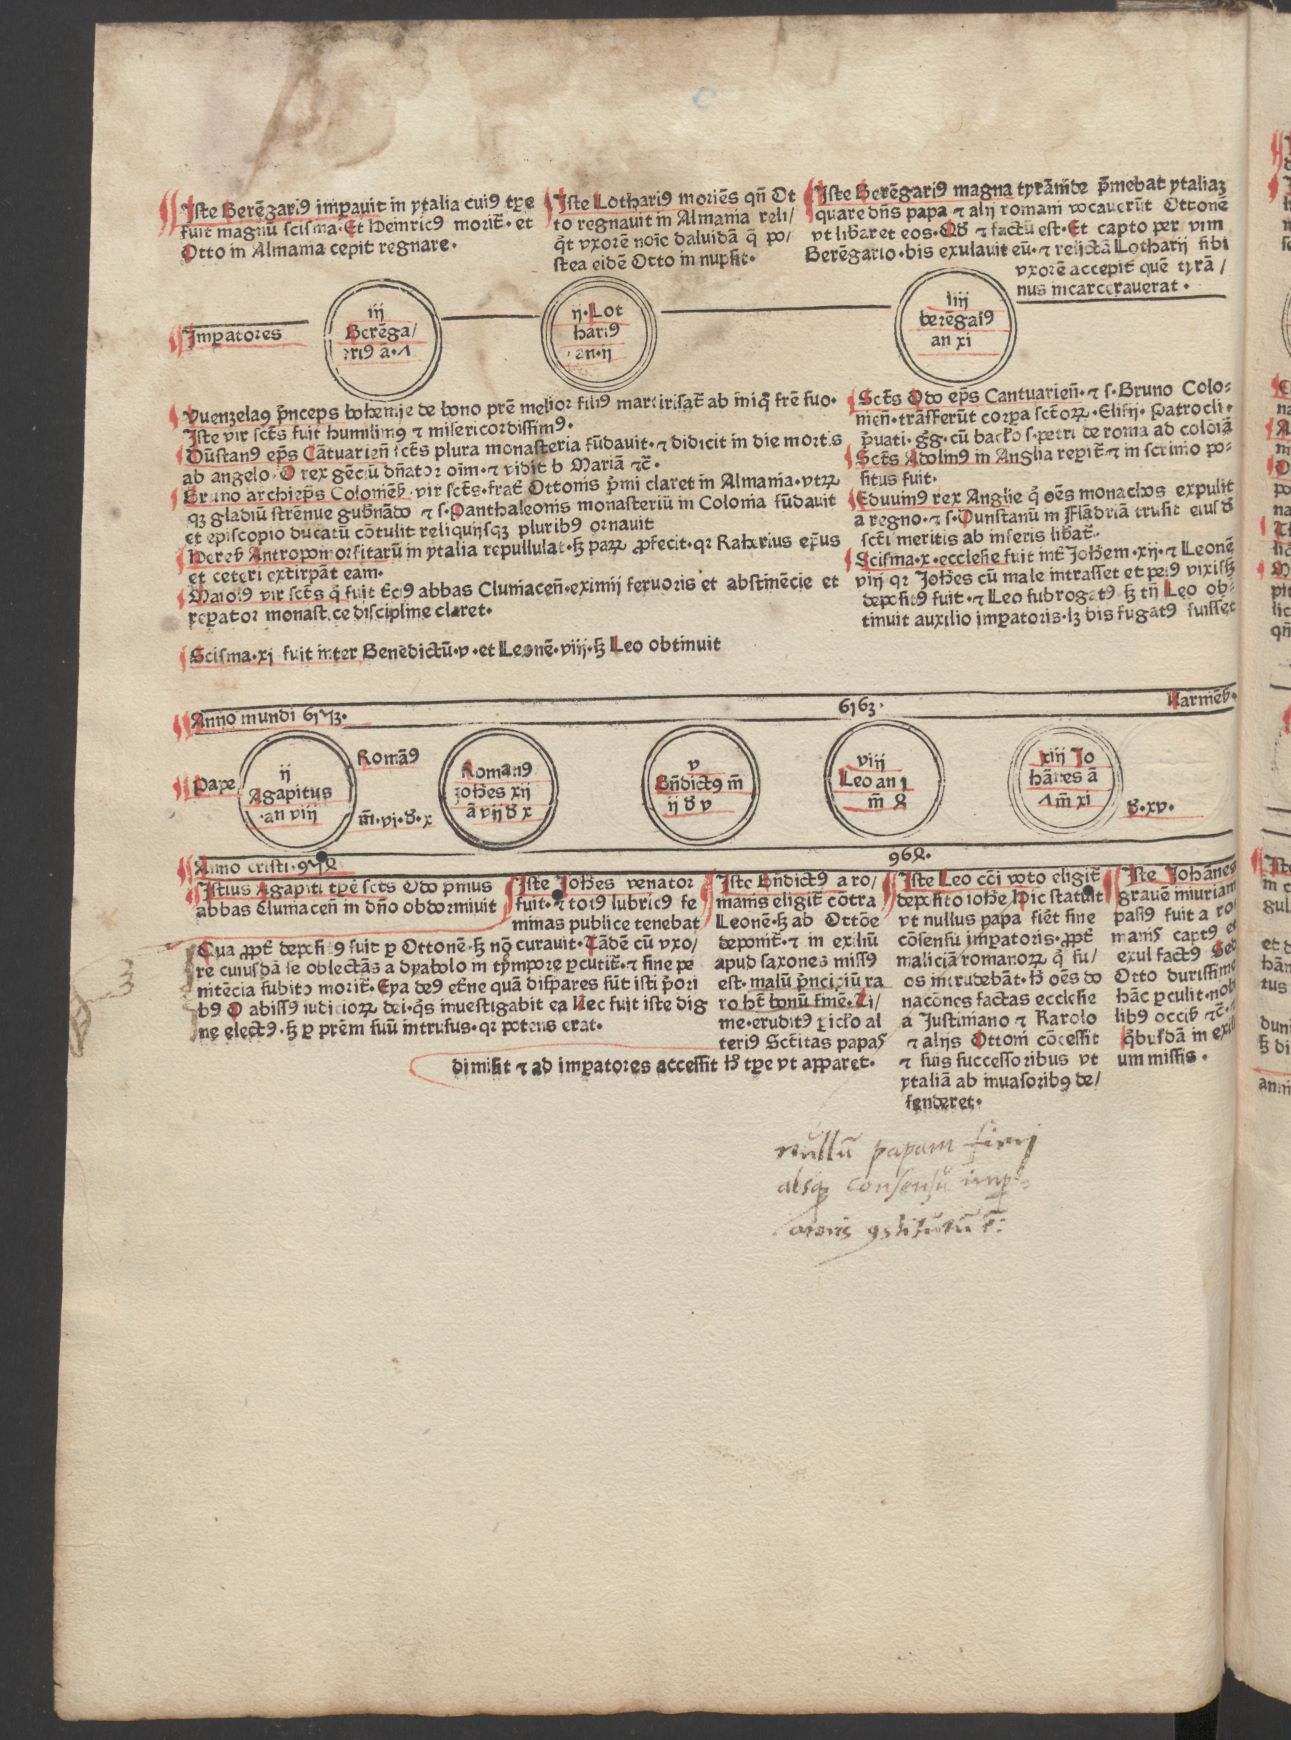 Iste Berēgariꝰ imꝑauit in ytalia cuiꝰ tꝑe
fuit magnū scisma·Et Heinricꝰ morit̄·et
Otto in Almania cepit regnare·
Iste Lothariꝰ moriēs qn̄ Ot
to regnauit in Almania reli/
q̄t vxorē noīe daluidā q̄ po/
stea eidē Otto in nupsit·
Iste Berēgariꝰ magna tyrām̄de p̄mebat ytaliaꝫ
quare dn̄s papa ⁊ alij romani vocauerūt Ottonē
vt libaret eos·Qd̄ ⁊ factū est·Et capto per vim
Berēgario·bis exulauit eū·⁊ relictā Lotharij sibi
vxorē accepit quē tyrā/
nus incarcerauerat·
Imꝑatores
iij
Berēga/
riꝰ ā·Λ
ij·Lot
hariꝰ
an·ij
iiij
berēgaiꝰ
an xi
Vuenzelaꝰ p̄nceps bohemie de bono pre̅ melior filiꝰ martirisat̄ ab iniq̄ fre̅ suo·
Iste vir sct̄s fuit humilimꝰ ⁊ misericordissimꝰ·
Dūstanꝰ ep̄s Cātuarien̄ sct̄s plura monasteria fūdauit·⁊ didicit in die mortis
ab angelo·O rex gēciū dn̄ator oīm·⁊ vidit b Mariā ⁊c̄·
Bruno archiep̄s Colonien̄·vir sct̄s·frat̄ Ottonis p̄mi claret in Almania·vtꝝ
qꝫ gladiū strēnue gub̄nādo ⁊ s·Panthaleonis monasteriū in Colonia fūdauit
et episcopio ducatū cōtulit reliquijsqꝫ pluribꝰ ornauit
Heres̄ Antropomorfitarū in ytalia repullulat·sꝫ paꝝ ꝓfecit·qꝛ Raterius ep̄us
et ceteri extirpāt eam·
Maiolꝰ vir sct̄s q̄ fuit t̄ciꝰ abbas Cluniacen̄·eximij feruoris et abstinēcie et
reꝑator monast̄ce discipline claret·
Scisma·xi fuit inter Benedictū·v·et Leonē·viij·sꝫ Leo obtinuit
Sct̄s Odo ep̄s Cantuarien̄·⁊ s·Bruno Colo-
nien̄·trāsferūt corꝑa sct̄oꝝ·Elisij·Patrocli·
p̄uati·g̅g·cū baclo s·petri de roma ad coloiā
Sct̄s Adolinꝰ in Anglia reꝑit̄·⁊ in scrinio po-
situs fuit·
Eduuinꝰ rex Anglie q̄ oēs monachos expulit
a regno·⁊ s·Dunstanū in Flādriā trusit eius d̄
sct̄i meritis ab inferis libat̄·
Scisma·x·ecclesie fuit int̄ Johem·xij·⁊ Leonē
viij qꝛ Johes cū male intrasset et peiꝰ vixissꝫ
depositꝰ fuit·⁊ Leo subrogatꝰ sꝫ tn̄ Leo ob-
tinuit auxilio imꝑatoris·lꝫ bis fugatꝰ fuisset
Anno mundi 6153·
6163·
Narnien̄·
Pape
ij
Agapitus
·an viij
Romāꝰ
m̄·vj·d̄·x
Romanꝰ
Johes xij
ā vij d̄ x
v
Bn̄dictꝰ m̄
ij d̄ v
viij
Leo an j
m̄ 4
xiij Jo
hānes ā
Λ m̄ xi
d̄·xv·
Anno cristi·954
964·
Istius Agapiti tꝑē sct̄s Odo p̄mus
abbas Cluniacen̄ in dn̄o obdormiuit
Iste Johes venator
fuit·⁊ totꝰ lubricꝰ fe
minas publice tenebat
Cua ꝓpt̄ depositꝰ fuit ꝑ Ottonē·sꝫ nō curauit·Tādē cū vxo/
re cuiusdā se oblectās a dyabolo in tympore ꝑcutit̄·⁊ sine pe
nitēcia subito morit̄·Eya deꝰ et̄ne quā disꝑares sūt isti p̄ori
bꝰ O abissꝰ iudicioꝝ dei·q̄s inuestigabit ea Nec fuit iste dig
ne electꝰ·sꝫ ꝑ prēm suū intrusus·qꝛ potens erat·
Iste Bn̄dictꝰ a ro/
manis eligit̄ cōtra
Leonē·sꝫ ab Ottōe
deponit̄·⁊ in exiliū
apud saxones missꝰ
est·malū p̄ncipiū ra
ro ht̄ bonū finē·Ti/
me·eruditꝰ ꝑiclo al
teriꝰ Sct̄itas papaꝭ
dimisit ⁊ ad imꝑatores accessit h̄ tꝑe vt apparet·
Iste Leo cōi voto eligit̄
deposito iohe Hic statuit
vt nullus papa fiēt sine
cōsensu imꝑatoris·ꝓpt̄
maliciā romanoꝝ q̄ su/
os intrudebāt·h̄ oēs do
nacōnes factas ecclesie
a Justiniano ⁊ Karolo
⁊ alijs Ottoni cōcessit
⁊ suis successoribus vt
ytaliā ab inuasoribꝰ de/
fenderet·
Iste Johānes
grauē iniuriam
passꝰ fuit a ro
manis captꝰ et
exul factꝰ Sed
Otto durissime
hāc ꝑculit·nob
libꝰ occis̄ ⁊c̄·⁊
q̄busdā in exili
um missis·
nullū papam fieri
absqꝫ consensu imꝑ-
atoris ꝯstitutū ē: